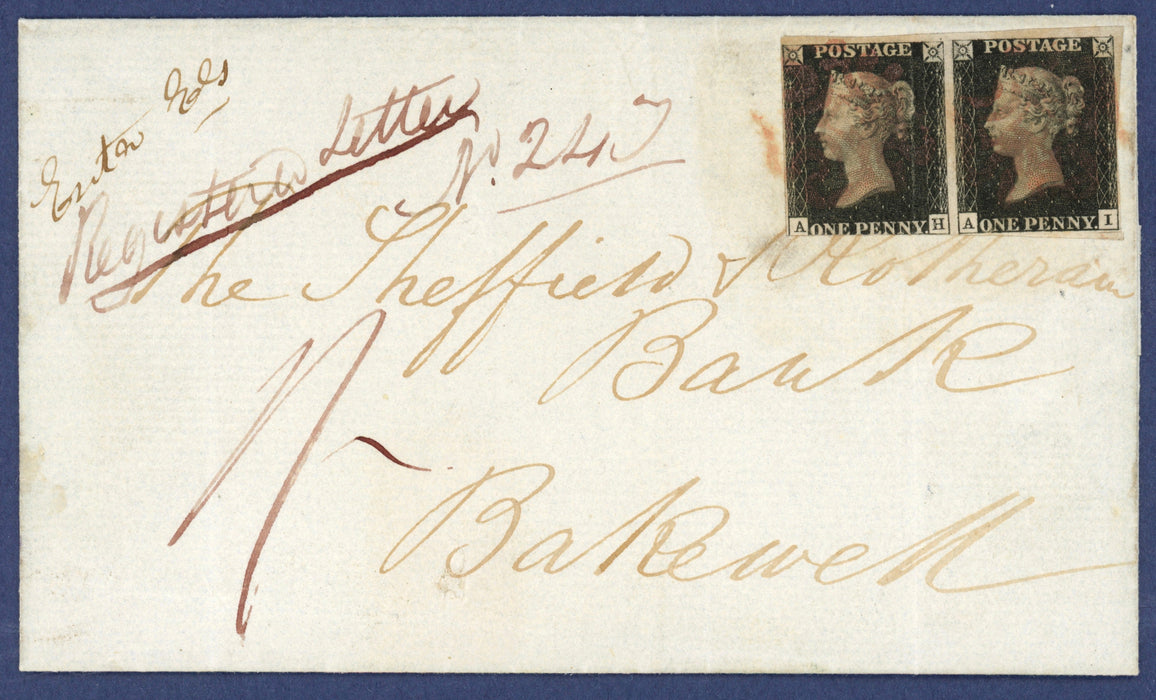 Registered Letter
No. 247
The Sheffield & Rotheram
Bank
Bakewell
1/-
POSTAGE
A ONE PENNY. H
POSTAGE
A ONE PENNY. I